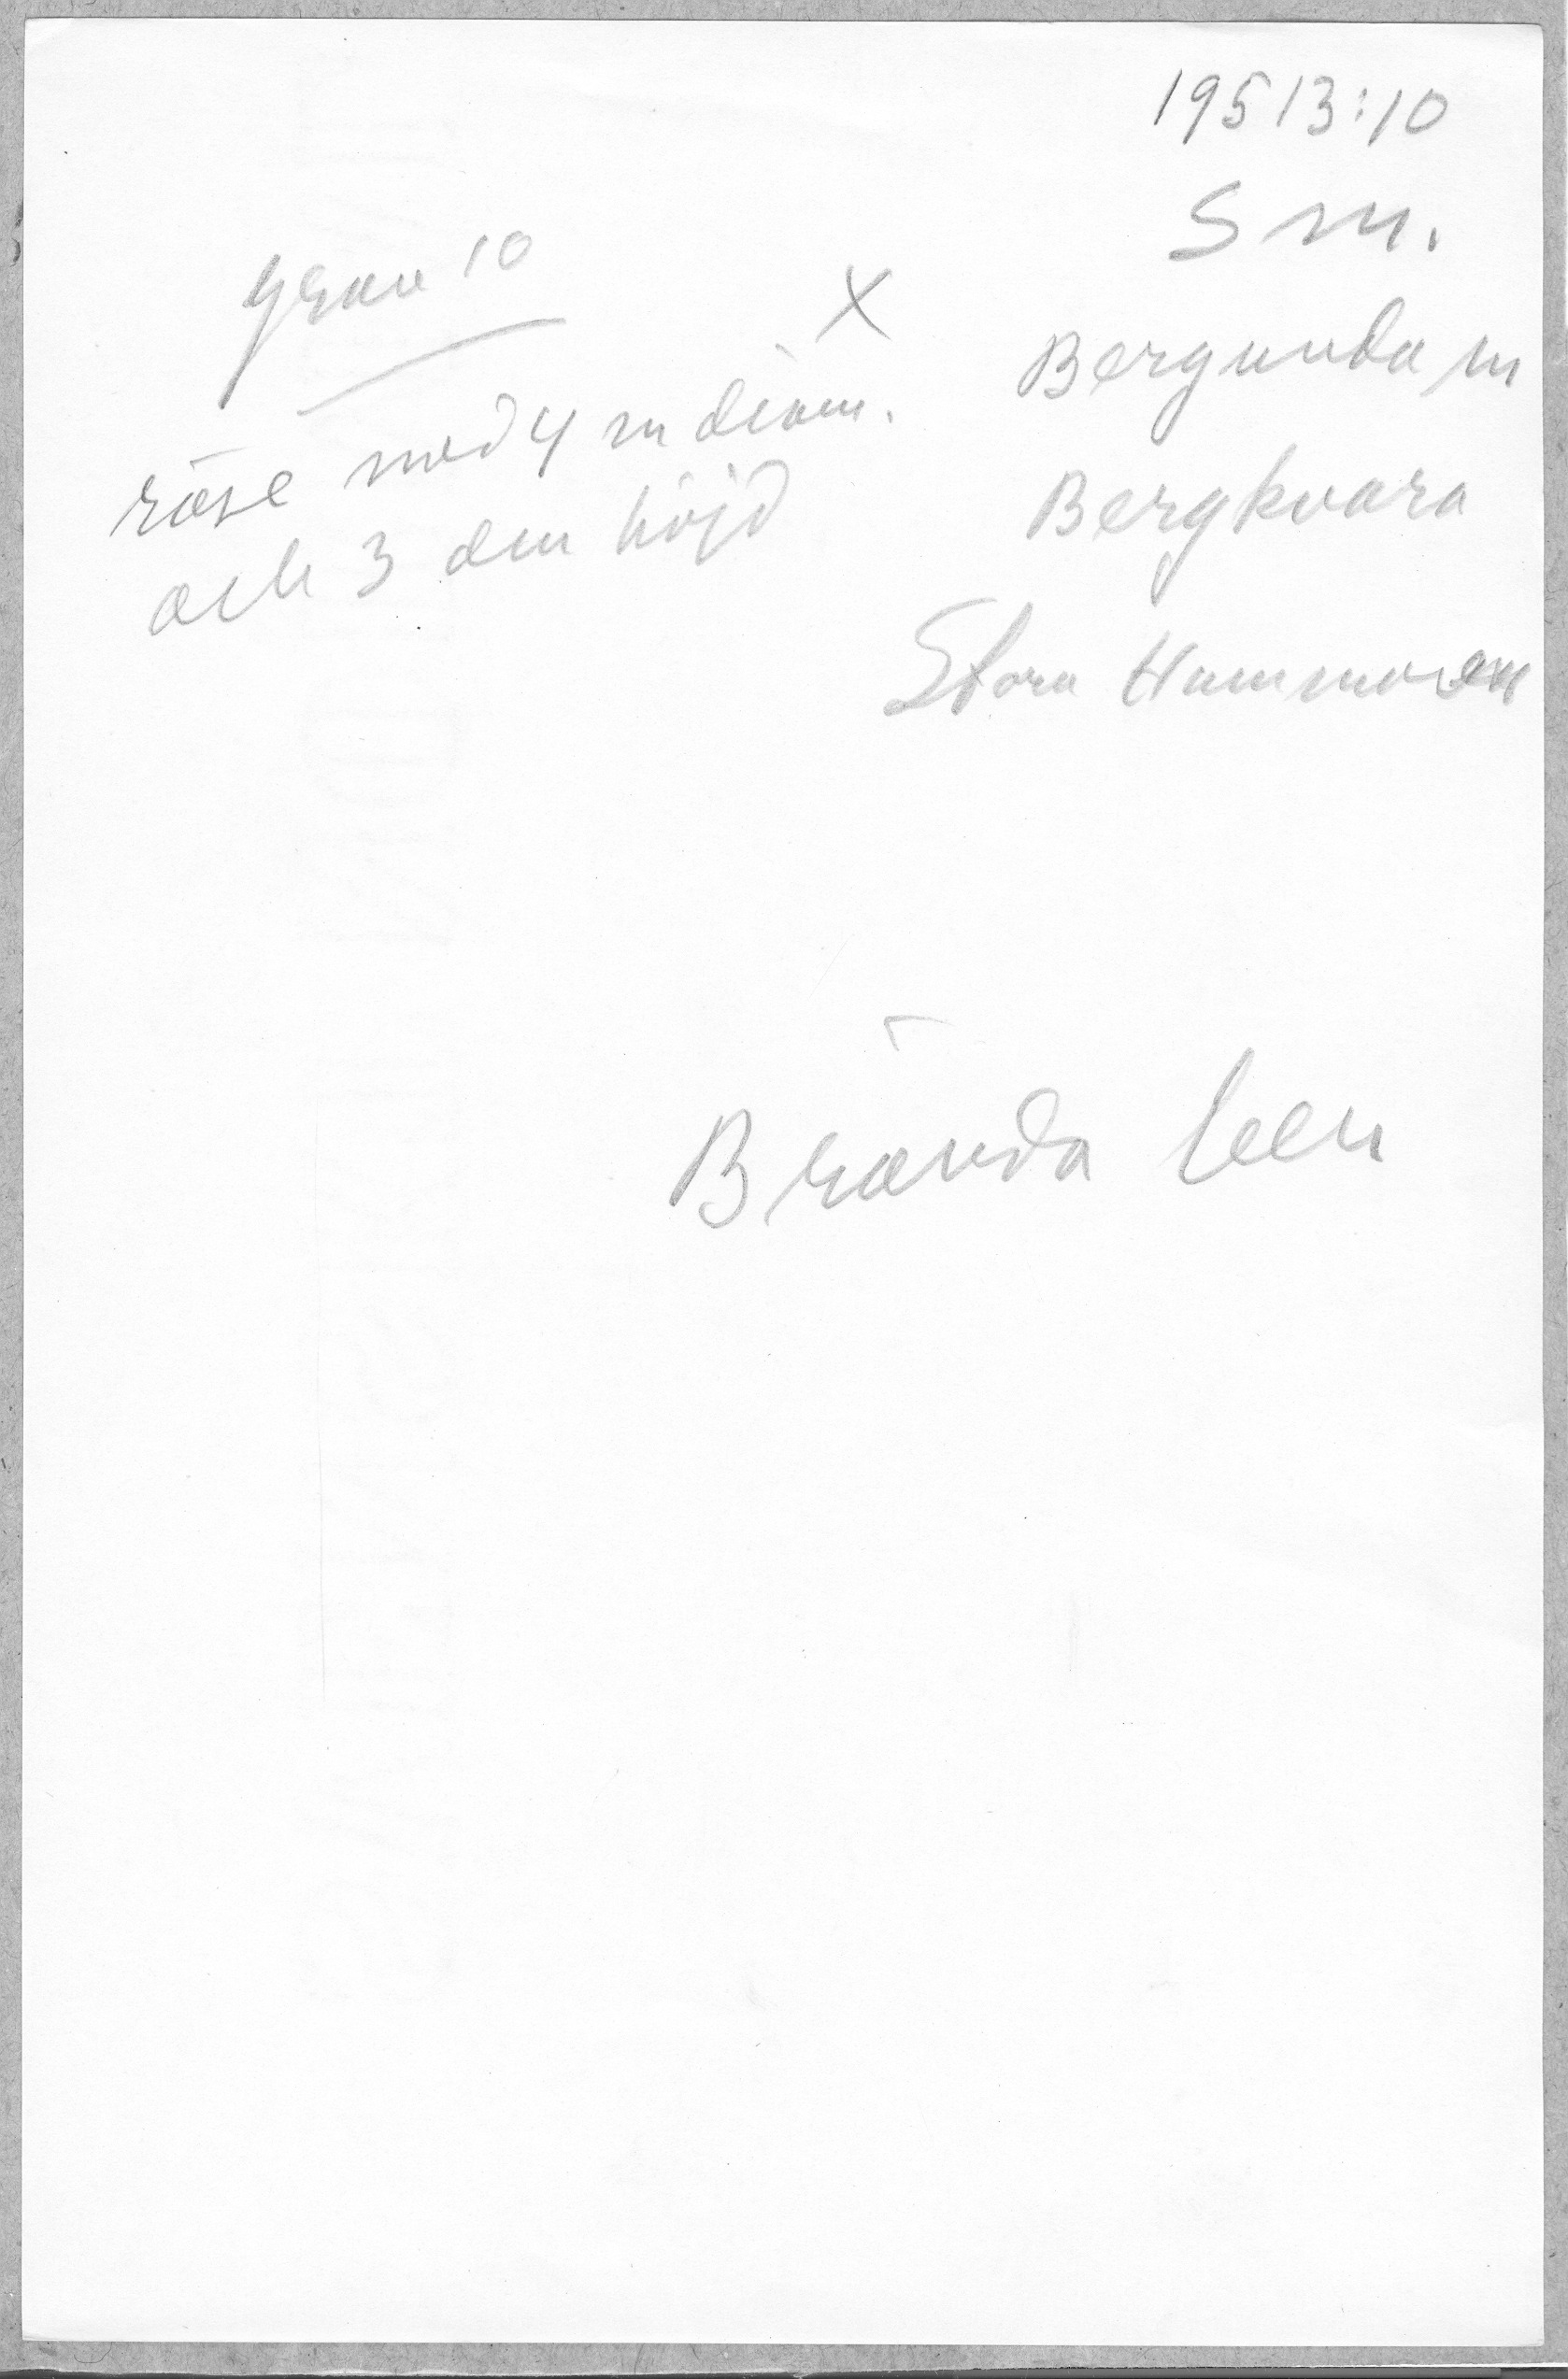 19513:10
Sm.
Bergunda sn
Bergkvara
Stora Hammaren
grav 10
X
röse med 4 m diam.
och 3 dm höjd
Brända ben